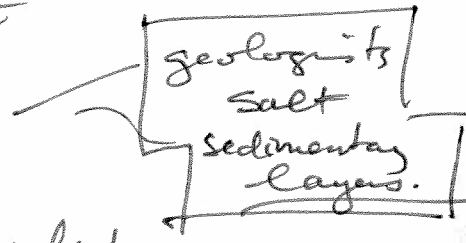 geologists
salt
sedimentary
layers.